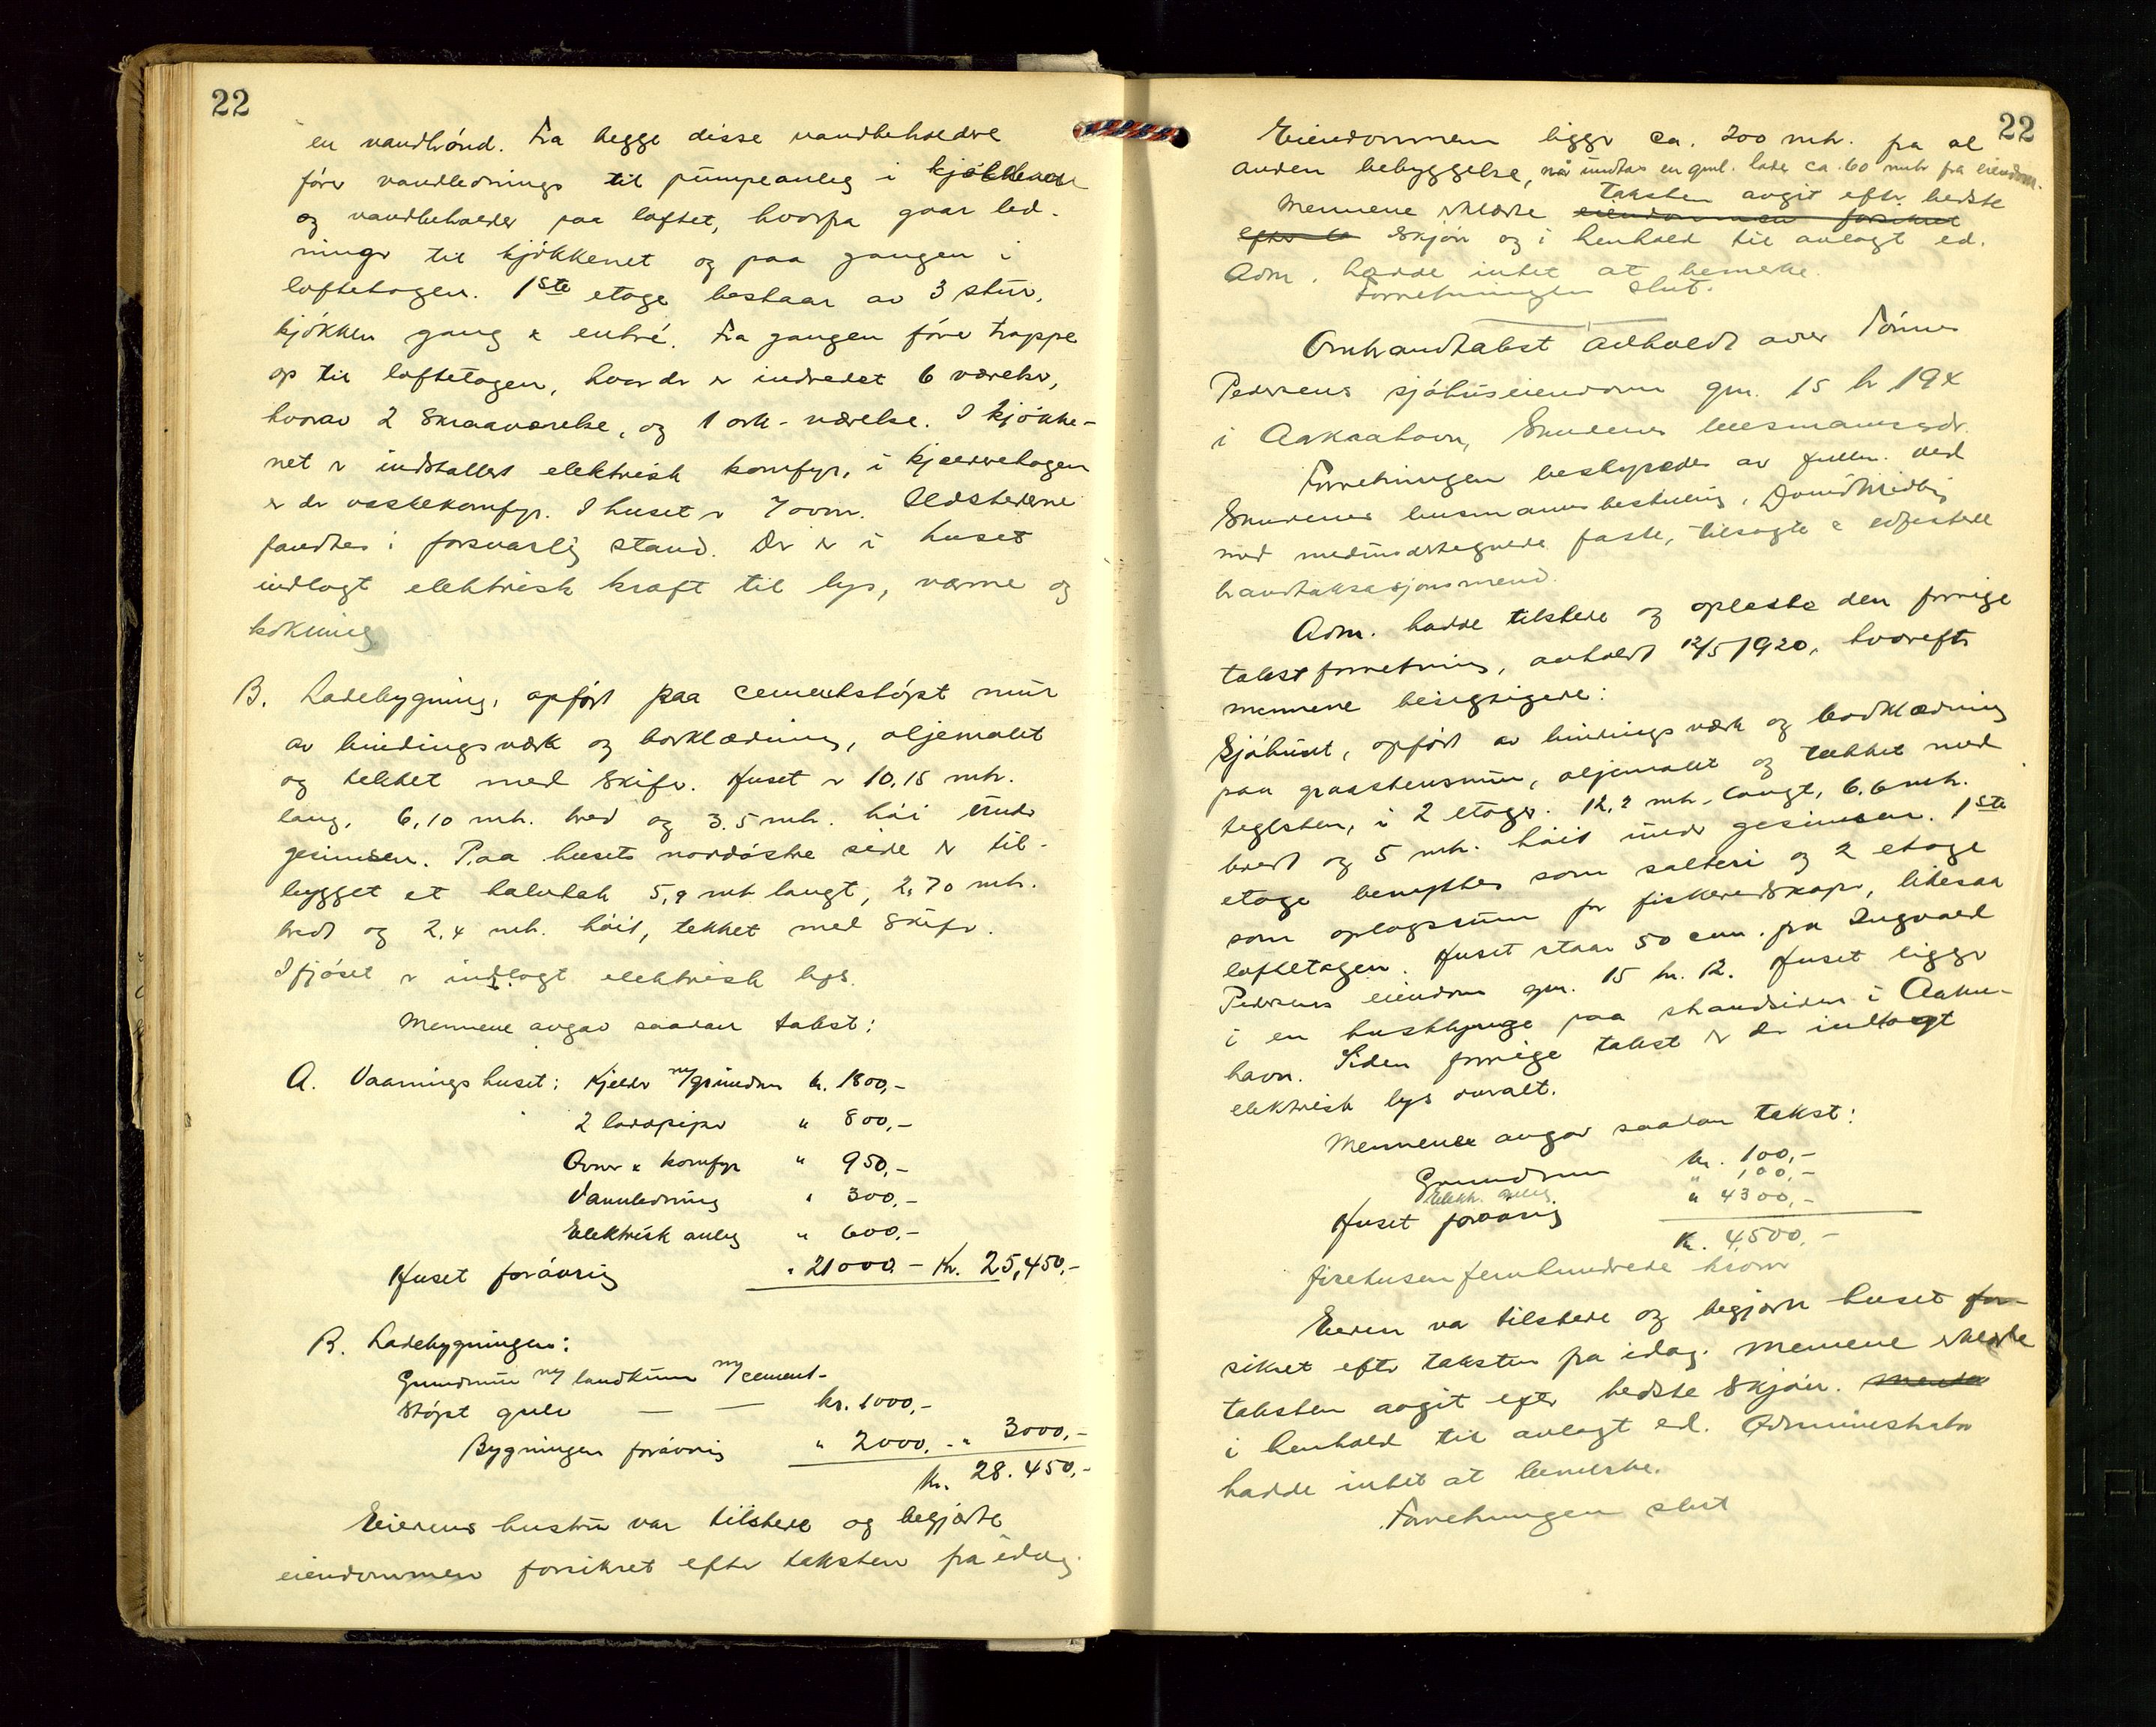 22
en vandbrönd. Fra begge disse vandbeholdere
förer vandledninger til pumpeanleg i kjökkenet
og vandbeholder paa loftet, hvorfra gaar led-
ninger til kjökkenet og paa gangen i
loftetagen. 1ste etage bestaar av 3 stuer,
kjökken gang & entré. Fra gangen förer trappe
op til loftetagen, hvor der er indredet 6 værelser,
hvorav 2 smaaværelser, og 1 ark-værelse. I kjökke-
net er indstallert elektrisk komfyr, i kjelderetagen
er der vasskekomfyr. I huset er 7 ovner. Ildstederne
fandtes i forsvarlig stand. Der er i huset
indlagt elektrisk kraft til lys, varme og
kokning
B. Ladebygning, opfört paa cementstöpt mur
av bindingsverk og bordklædning, oljemalet
og tekket med skifer. Huset er 10,15 mtr.
lang, 6,10 mtr. bred og 3.5 mtr. höi under
gesimsen. Paa husets nordöstre side er til-
bygget et halvtak 5,9 mtr langt, 2,70 mtr.
bredt og 2,4 mtr. höit, tekket med skifer.
I fjöset er indlagt elektrisk lys.
Mennene avgav saadan takst:
A. Vaaningshuset: Kjelder m/grundmur kr. 1800,-
2 ladepiper " 800,-
Ovner & komfyr " 950,-
Vannledning " 300,-
Elektrisk anleg " 600,-
Huset forövrig " 21000 - Kr. 25,450,-
B. Ladebygningen:
Grundmur m/ landkum m/cement-
stöpt gulv — — kr. 1000,-
Bygningen forövrig " 2000,- " 3000,-
Kr. 28.450,-
Eierens hustru var tilstede og begjærte
eiendommen forsikret efter taksten fra idag.
22
Eiendommen ligger ca. 200 mtr. fra al
anden bebyggelse, når undtas en gml. lade ca. 60 mtr fra eiendom.
taksten avgit efter bedste
Mennene erklærte eiendommen forsikret
efter skjön og i henhold til avlagt ed.
Adm. hadde intet at bemerke.
Forretningen slut.
Ombrandtakst avholdt over Tönnes
Pedersens sjöhuseiendom gnr. 15 br 194
i Aakrahavn, Skudenes lensmannsdr.
Forretningen bestyredes av fullm. ved
Skudenes lensmannsbestilling,
med medundertegnede faste, tilsagte & edfestede
brandtaksasjonsmend.
Adm. hadde tilstede og oplæste den forrige
takstforretning, avholdt 12/5 1920, hvorefter
mennene besigtigede:
Sjöhuset, opfört av bindingsverk og bordklædning
paa graastensmur, oljemalet og tækket med
teglsten, i 2 etager. 12,2 mtr. langt, 6.6 mtr.
bredt og 5 mtr. höit under gesimsen. 1ste
etage benyttes som salteri og 2 etage
som oplagsrum for fiskeredskaper, likesaa
loftetagen. Huset staar 50 cm. fra Ingvald
Pedersens eiendom gnr. 15 br. 12. Huset ligger
i en husklynge paa strandsiden i Aakra-
havn. Siden forrige takst er der indlagt
elektrisk lys overalt.
Mennene avgav saadan takst:
Grundmur kr. 100,-
Elektr. anleg " 100,-
Huset forövrig " 4300,-
Kr. 4500,-
firetusenfemhundrede kroner
Eieren var tilstede og begjærte huset for-
sikret efter taksten fra idag. Mennene erklærte
taksten avgit efter bedste skjön.
i henhold til avlagt ed. Administrator
hadde intet at bemerke.
Forretningen slut